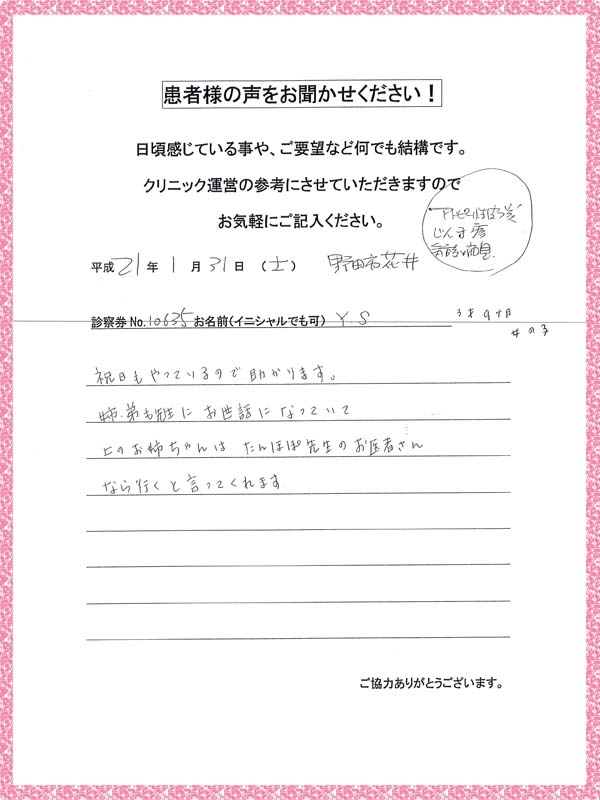 患者様の声をお聞かせください！
日頃感じている事や、ご要望など何でも結構です。
クリニック運営の参考にさせていただきますので
お気軽にご記入ください。
アトピー性皮ふ炎
じんま疹
気管支喘息
平成 21 年 1 月 31 日 （土） 野田市花井
診察券No. 10635 お名前（イニシャルでも可） Y.S 3才9ヶ月
女の子
祝日もやっているので助かります。
姉、弟も先生にお世話になっていて
上のお姉ちゃんは たんぽぽ先生のお医者さん
なら行くと言ってくれます
ご協力ありがとうございます。